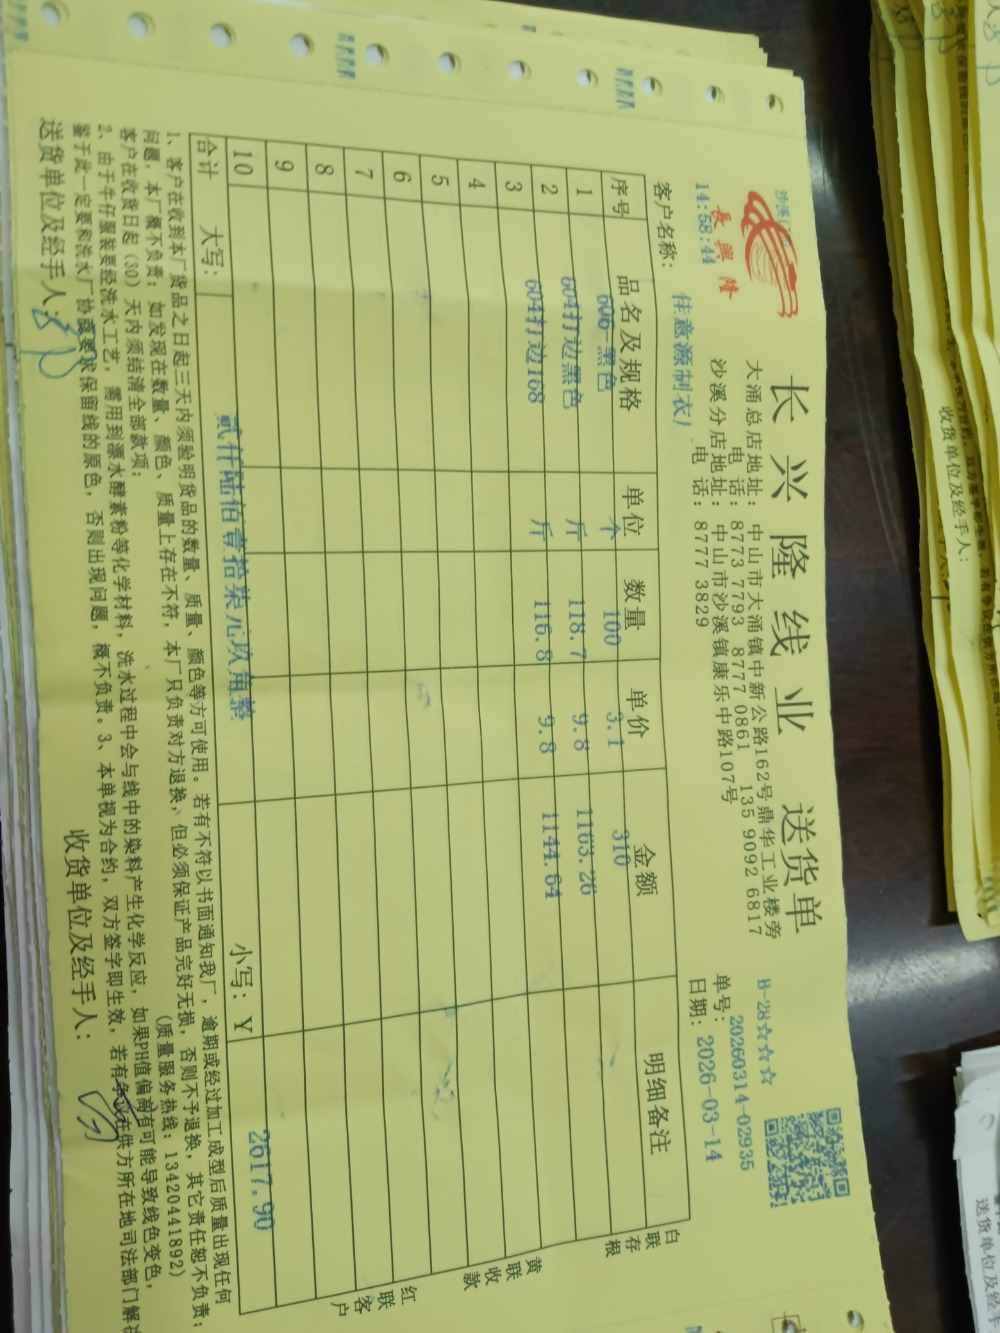 长兴隆线业 送货单
長興隆
14:58:44
大涌总店地址: 中山市大涌镇中新公路162号鼎华工业楼旁
电 话: 8773 7793 8777 0861 135 9092 6817
沙溪分店地址: 中山市沙溪镇康乐中路107号
电 话: 8777 3829
H-28☆☆☆
单号: 20260314-02935
日期: 2026-03-14
客户名称: 佳意源制衣厂
序号 品名及规格 单位 数量 单价 金额 明细备注
606 黑色 个 100 3.1 310
1 604打边黑色 斤 118.7 9.8 1163.26
2 604打边168 斤 116.8 9.8 1144.64
3
4
5
6
7
8
9
10
合计 大写: 贰仟陆佰壹拾柒元玖角整 小写: ¥ 2617.90
白联存根
黄联收款
红联客户
1、客户在收到本厂货品之日起三天内须验明货品的数量、质量、颜色等方可使用。若有不符以书面通知我厂, 逾期或经过加工成型后质量出现任何
问题, 本厂概不负责; 如发现在数量、颜色、质量上存在不符, 本厂只负责对方退换, 但必须保证产品完好无损, 否则不予退换, 其它责任恕不负责;
客户在收货日起(30)天内须结清全部款项; (质量服务热线: 13420441892)
2、由于牛仔服装要经洗水工艺, 需用到漂水酵素粉等化学材料, 洗水过程中会与线中的染料产生化学反应, 如果PH值偏高有可能导致线色变色,
鉴于此一定要和洗水厂协商要求保留线的原色, 否则出现问题, 概不负责。3、本单视为合约, 双方签字即生效, 若有争议在供方所在地司法部门解决
送货单位及经手人: 收货单位及经手人:
收货单位及经手人:
送货单位及经手